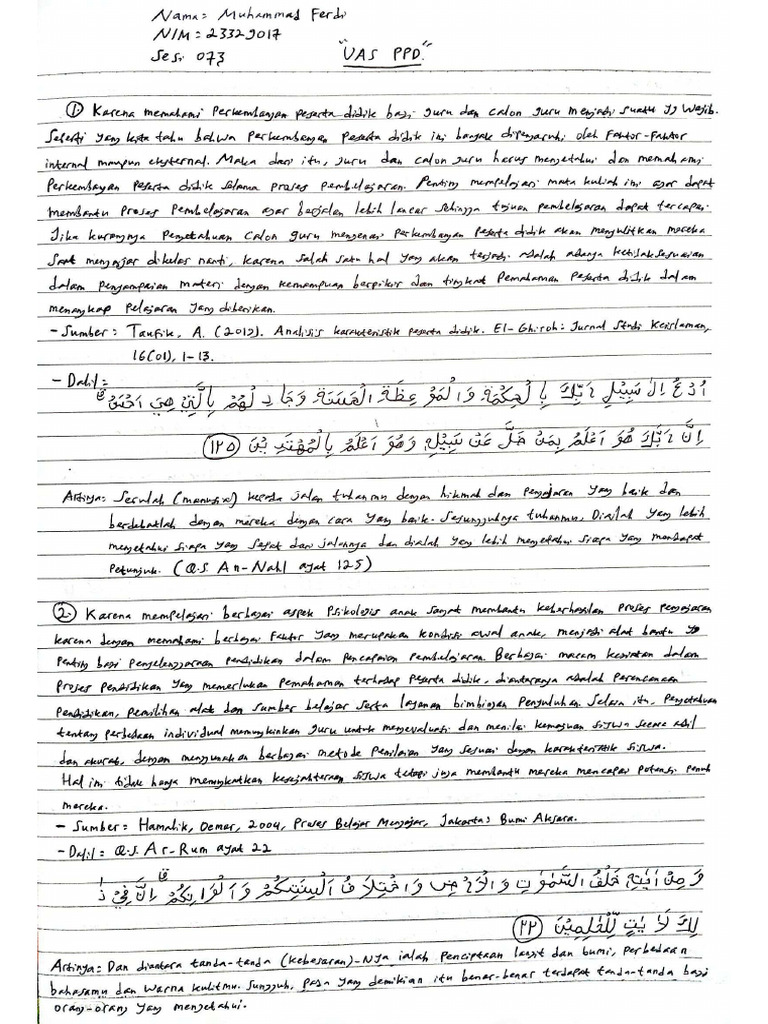 Nama: Muhammad Ferdi
NIM: 23329017
Sesi 073
"UAS PPD"
① Karena memahami Perkembangan peserta didik bagi guru dan calon guru menjadi suatu yg wajib.
Seperti yang kita tahu bahwa Perkembangan peserta didik ini banyak dipengaruhi oleh Faktor-Faktor
internal maupun eksternal. Maka dari itu, guru dan calon guru harus mengetahui dan memahami
Perkembangan peserta didik selama proses pembelajaran. Penting mempelajari mata kuliah ini agar dapat
membantu proses pembelajaran agar berjalan lebih lancar sehingga tujuan pembelajaran dapat tercapai.
Jika kurangnya Pengetahuan calon guru mengenai Perkembangan peserta didik akan menyulitkan mereka
saat mengajar dikelas nanti, karena salah satu hal yang akan terjadi adalah adanya ketidaksesuaian
dalam penyampaian materi dengan kemampuan berpikir dan tingkat Pemahaman Peserta didik dalam
menangkap Pelajaran yang diberikan.
- Sumber: Taufik, A. (2019). Analisis karakteristik peserta didik. El-Ghiroh: Jurnal Studi Keislaman,
16(01), 1-13.
- Dalil:
اُدْعُ اِلٰى سَبِيْلِ رَبِّكَ بِالْحِكْمَةِ وَالْمَوْعِظَةِ الْحَسَنَةِ وَجَادِلْهُمْ بِالَّتِيْ هِيَ اَحْسَنُۗ
اِنَّ رَبَّكَ هُوَ اَعْلَمُ بِمَنْ ضَلَّ عَنْ سَبِيْلِهٖ وَهُوَ اَعْلَمُ بِالْمُهْتَدِيْنَ (١٢٥)
Artinya: Serulah (manusia) kepada jalan tuhanmu dengan hikmah dan pengajaran yang baik dan
berdebatlah dengan mereka dengan cara yang baik. Sesungguhnya tuhanmu, Dialah yang lebih
mengetahui siapa yang sesat dari jalannya dan dialah yang lebih mengetahui siapa yang mendapat
Petunjuk. (Q.S An-Nahl ayat 125)
② Karena mempelajari berbagai aspek Psikologis anak sangat membantu keberhasilan proses pengajaran
karena dengan memahami berbagai Faktor yang merupakan kondisi awal anak, menjadi alat bantu yg
Penting bagi Penyelenggaraan pendidikan dalam pencapaian pembelajaran. Berbagai macam kegiatan dalam
proses Pendidikan yang memerlukan pemahaman terhadap peserta didik, diantaranya adalah Perencanaan
Pendidikan, pemilihan alat dan sumber belajar serta layanan bimbingan Penyuluhan. Selain itu, Pengetahuan
tentang perbedaan individual memungkinkan guru untuk mengevaluasi dan menilai kemajuan siswa secara adil
dan akurat, dengan menggunakan berbagai metode Penilaian yang sesuai dengan karakteristik siswa.
Hal ini tidak hanya meningkatkan kesejahteraan siswa tetapi juga membantu mereka mencapai potensi penuh
mereka.
- Sumber: Hamalik, Oemar, 2004, Proses Belajar Mengajar, Jakarta: Bumi Aksara.
- Dalil: Q.S. Ar-Rum ayat 22
وَمِنْ اٰيٰتِهٖ خَلْقُ السَّمٰوٰتِ وَالْاَرْضِ وَاخْتِلَافُ اَلْسِنَتِكُمْ وَاَلْوَانِكُمْۗ اِنَّ فِيْ ذٰ
لِكَ لَاٰيٰتٍ لِّلْعٰلِمِيْنَ (٢٢)
Artinya: Dan diantara tanda-tanda (kebesaran)-Nya ialah penciptaan langit dan bumi, perbedaan
bahasamu dan warna kulitmu. Sungguh, pada yang demikian itu benar-benar terdapat tanda-tanda bagi
orang-orang yang mengetahui.